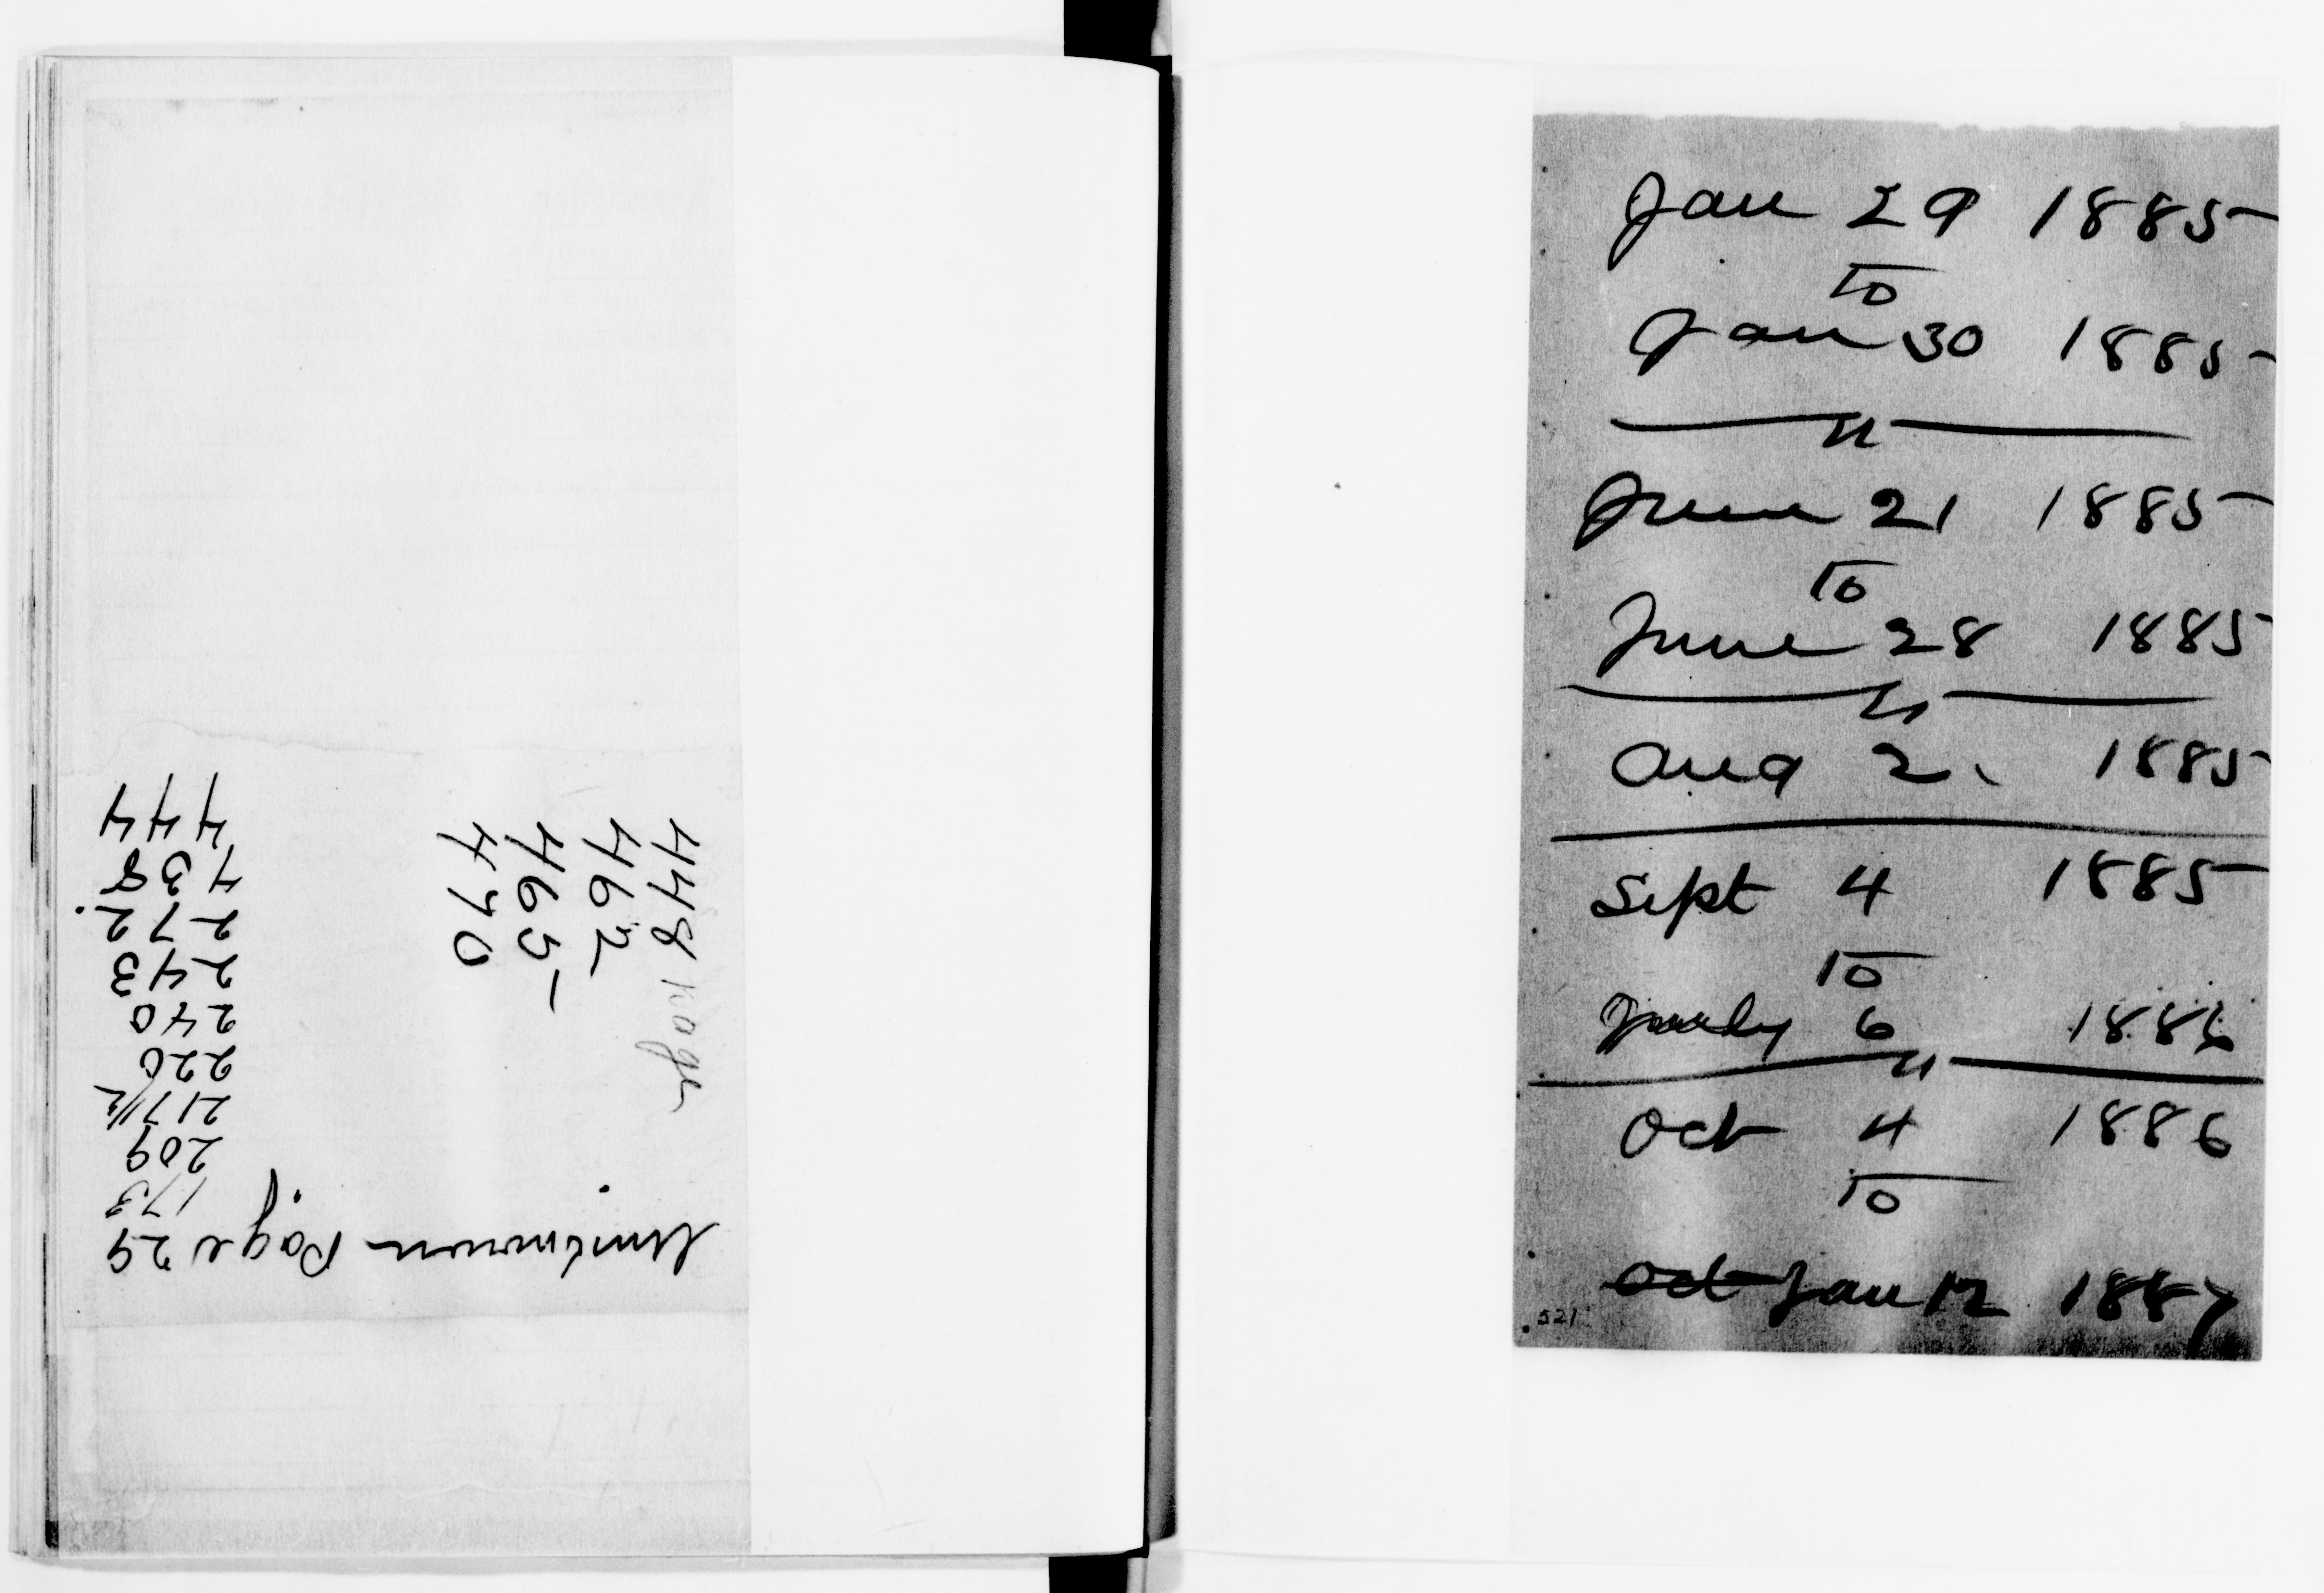 Page 29
173
209
217 1/2
220
240
243
272
438
444
448 page
462
465
470
Jan 29 1885
to
Jan 30 1885
June 21 1885
to
June 28 1885
Aug 2 1885
Sept 4 1885
to
July 6 1886
Oct 4 1886
to
Oct Jan 12 1887
521